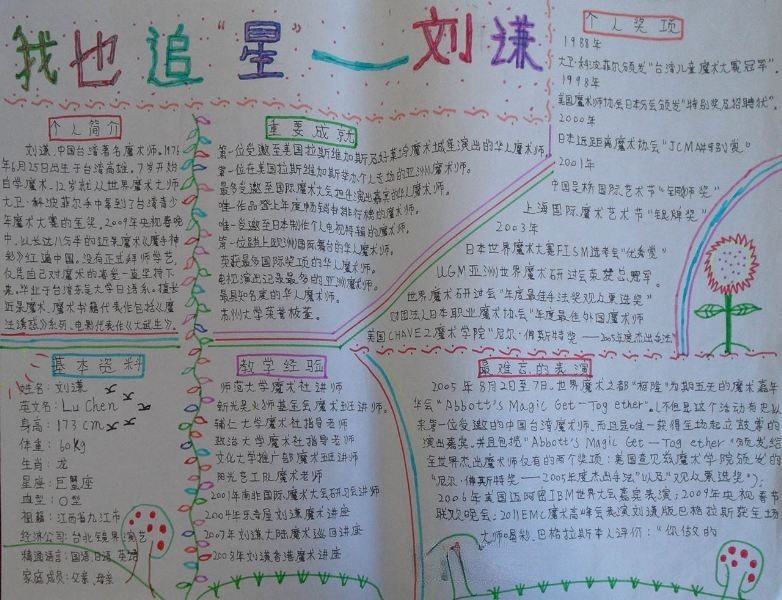 我也追"星"——刘谦
个人简介
刘谦,中国台湾著名魔术师。1976
年6月25日出生于台湾高雄。7岁开始
自学魔术。12岁就从世界魔术大师
大卫·科波菲尔手中拿到了台湾青少
年魔术大赛的金奖。2009年央视春晚
中,以长达八分多钟的近景魔术《魔手神
彩》红遍中国。没有正式拜师学艺,
仅凭自己对魔术的喜爱一直坚持下
来。毕业于台湾东吴大学日语系。擅长
近景魔术。魔术书籍代表作包括《魔
法诱惑》系列、电影代表作《大武生》。
重要成就
第一位受邀至美国拉斯维加斯及好莱坞魔术城堡演出的华人魔术师。
第一位在美国拉斯维加斯举办个人专场的亚洲魔术师。
最多受邀至国际魔术大会担任演出嘉宾的华人魔术师。
唯一作品登上年度畅销书排行榜的魔术师。
唯一受邀至日本制作个人电视特辑的魔术师。
第一位踏上欧洲国际舞台的华人魔术师。
英获最多国际奖项的华人魔术师。
电视演出记录最多的亚洲魔术师。
最具知名度的华人魔术师。
苏州大学荣誉校董。
个人奖项
1988年
大卫·科波菲尔颁发"台湾儿童魔术大赛冠军"
1998年
美国魔术师协会日本分会颁发"特别奖及招聘状"
2000年
日本近距离魔术协会"JCMA特别赏"
2001年
中国吴桥国际艺术节"铜狮奖"
上海国际魔术艺术节"银牌奖"
2003年
日本世界魔术大赛FISM选考会"优秀赏"
UGM亚洲世界魔术研讨会英赞总冠军。
世界魔术研讨会"年度最佳手法奖观众票选奖"
财团法人日本职业魔术协会"年度最佳外国魔术师
美国CHAVEZ魔术学院"尼尔·佛斯特奖——2005年度杰出手法
基本资料
姓名:刘谦
英文名:Lu Chen
身高:173cm
体重:60kg
生肖:龙
星座:巨蟹座
血型:O型
祖籍:江西省九江市
经济公司:台北镜界演艺
精通语言:国语、日语、英语
家庭成员:父亲、母亲
教学经验
师范大学魔术社讲师
新光吴火狮基金会魔术班讲师。
辅仁大学魔术社指导老师
政治大学魔术社指导老师
文化大学推广部魔术班讲师
阳光艺工队魔术老师
2001年南非国际魔术大会研习会讲师
2004年乐声屋刘谦魔术讲座
2007年刘谦大陆魔术巡回讲座
2008年刘谦香港魔术讲座
最难忘的表演
2005年8月2日至7日,世界魔术之都"柯隆"为期五天的"魔术嘉年
华会"Abbott's Magic Get—Together"。(不但是这个活动有史以
来第一位受邀的中国台湾魔术师,而且是唯一获得全场起立鼓掌的
演出嘉宾。并且包揽"Abbott's Magic Get—Together"颁发给
全世界杰出魔术师仅有的两个奖项:美国查贝兹魔术学院颁发的
"尼尔·佛斯特奖——2005年度杰出手法奖"以及"观众票选奖");
2006年美国迈阿密IBM世界大会嘉宾表演;2009年央视春节
联欢晚会;2011EMC魔术高峰会表演刘谦版巴格拉斯获全场
大师喝彩。巴格拉斯本人评价:"你做的